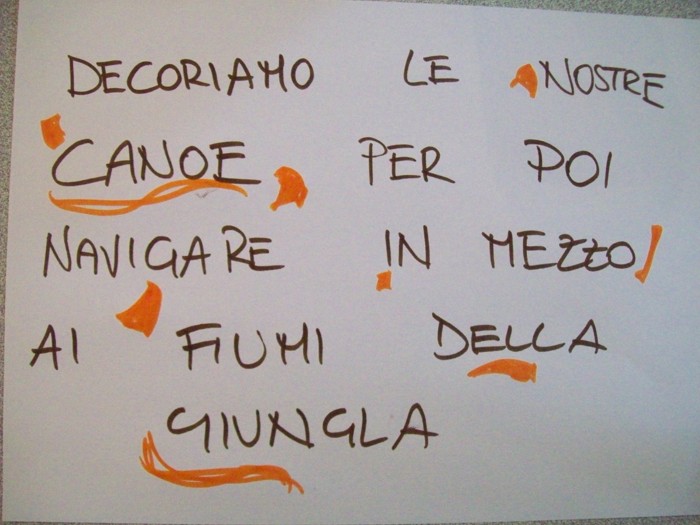 DECORIAMO LE NOSTRE
CANOE PER POI
NAVIGARE IN MEZZO
AI FIUMI DELLA
GIUNGLA